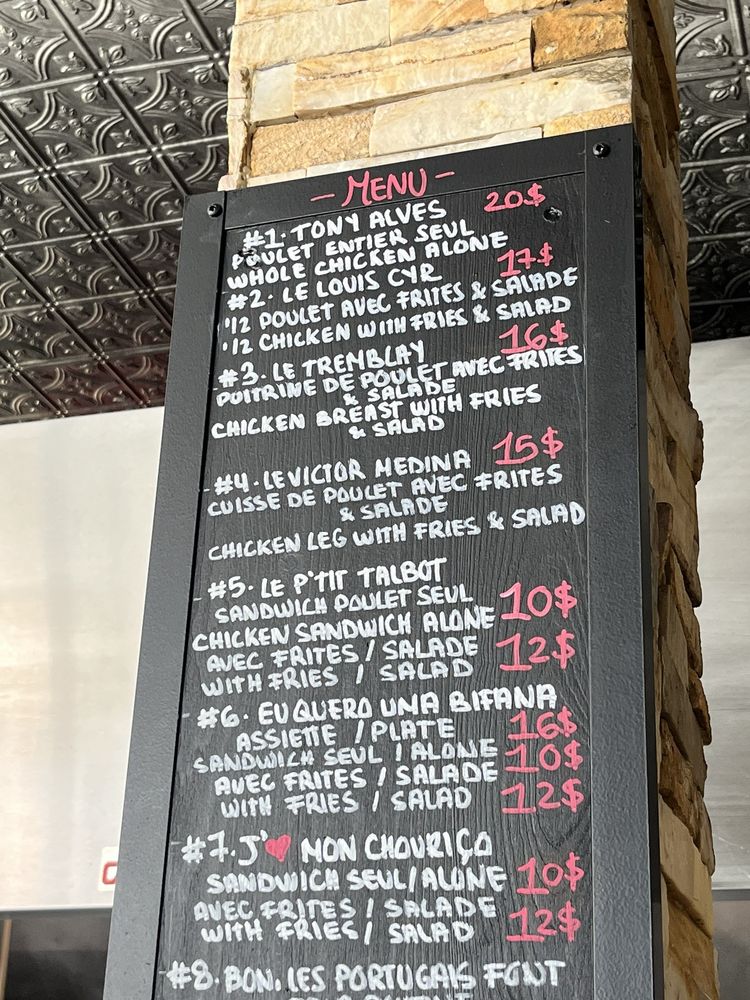 - MENU -
#1. TONY ALVES 20$
POULET ENTIER SEUL
WHOLE CHICKEN ALONE
#2. LE LOUIS CYR 17$
1/2 POULET AVEC FRITES & SALADE
1/2 CHICKEN WITH FRIES & SALAD
#3. LE TREMBLAY 16$
POITRINE DE POULET AVEC FRITES
& SALADE
CHICKEN BREAST WITH FRIES
& SALAD
#4. LE VICTOR MEDINA 15$
CUISSE DE POULET AVEC FRITES
& SALADE
CHICKEN LEG WITH FRIES & SALAD
#5. LE P'TIT TALBOT
SANDWICH POULET SEUL
CHICKEN SANDWICH ALONE 10$
AVEC FRITES / SALADE
WITH FRIES / SALAD 12$
#6. EU QUERO UNA BIFANA
ASSIETTE / PLATE 16$
SANDWICH SEUL / ALONE 10$
AVEC FRITES / SALADE
WITH FRIES / SALAD 12$
#7. J'❤ MON CHOURIÇO
SANDWICH SEUL/ALONE 10$
AVEC FRITES / SALADE
WITH FRIES / SALAD 12$
#8. BON. LES PORTUGAIS FONT